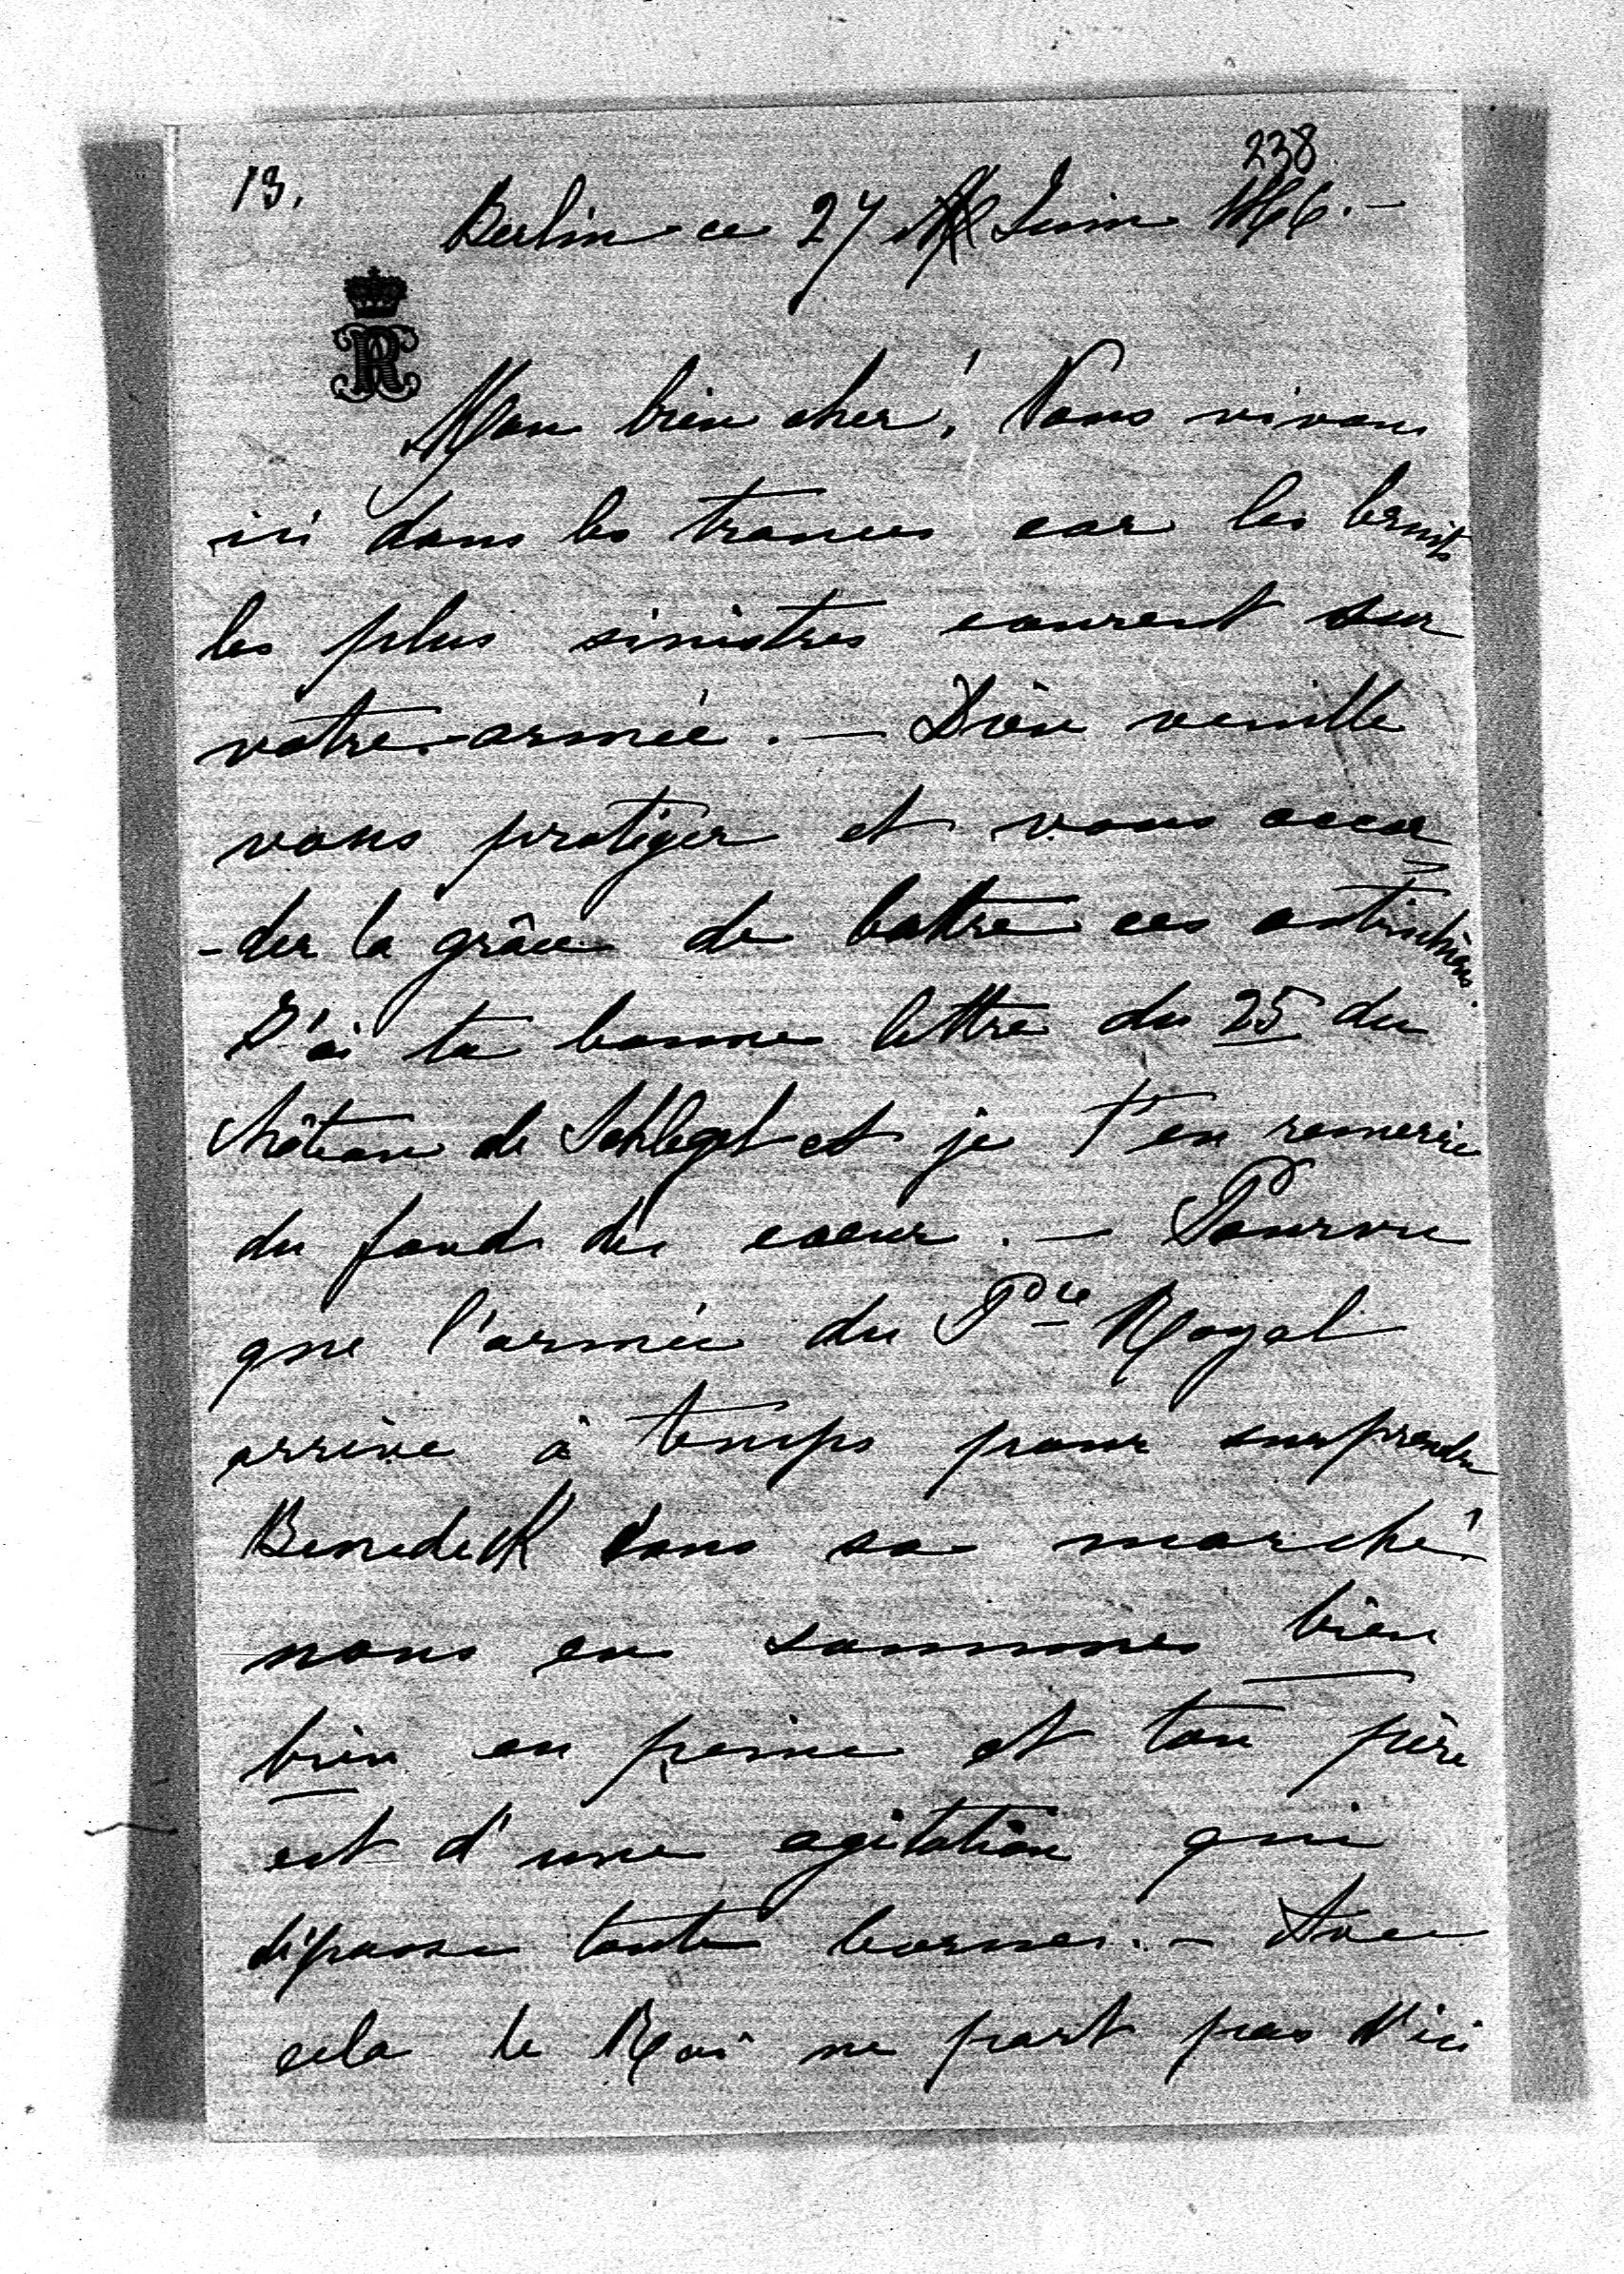 238
13.
Berlin ce 27 Juin 1866.–
Mon bien cher! Nous vivons
ici dans les trances car les bruits
les plus sinistres courent sur
votre armée. – Dieu veuille
vous protéger et vous accor
-der la grâce de battre ces autrichiens.
J'ai ta bonne lettre du 25 du
château de Schlegel et je t'en remercie
du fond du coeur. – Pourvu
que l'armée du Pce Royal
arrive à temps pour surprendre
Benedek dans sa marche!
nous en sommes bien
bien en peine et ton père
est d'une agitation qui
dépasse toute bornes. – Avec
cela le Roi ne part pas d'ici